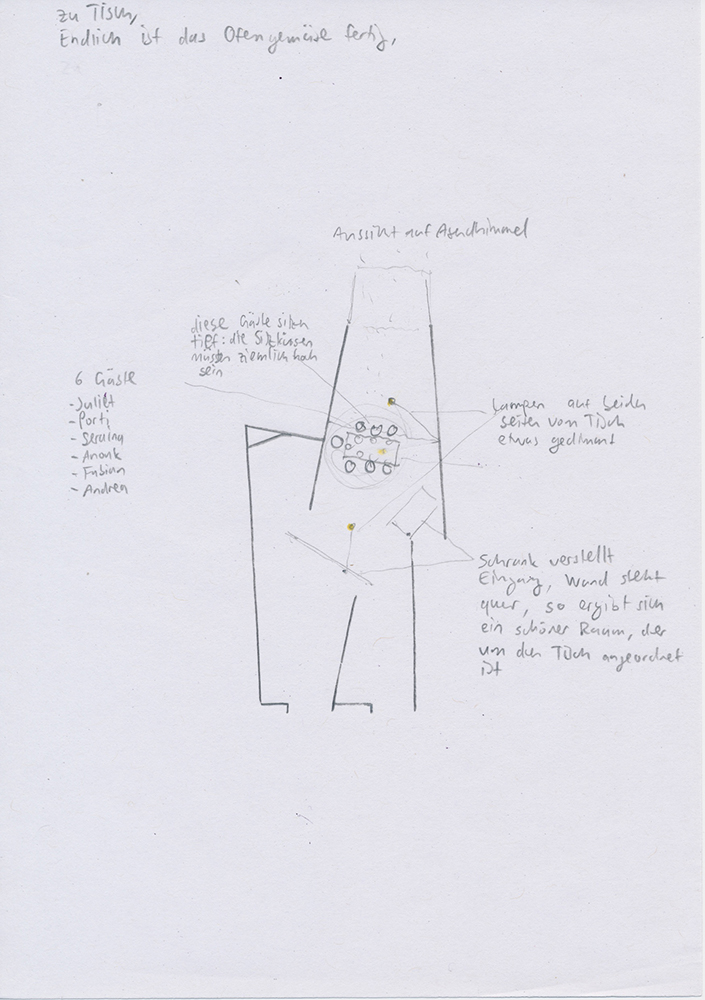 zu Tisch,
Endlich ist das Ofengemüse fertig,
Aussicht auf Abendhimmel
diese Gäste sitzen
tief: die Sitzkissen
müssen ziemlich hoch
sein
6 Gäste
- Juliet
- Porti
- Seraina
- Anouk
- Fabian
- Andrea
Lampen auf beiden
Seiten von Tisch
etwas gedimmt
Schrank verstellt
Eingang, Wand steht
quer, so ergibt sich
ein schöner Raum, der
um den Tisch angeordnet
ist